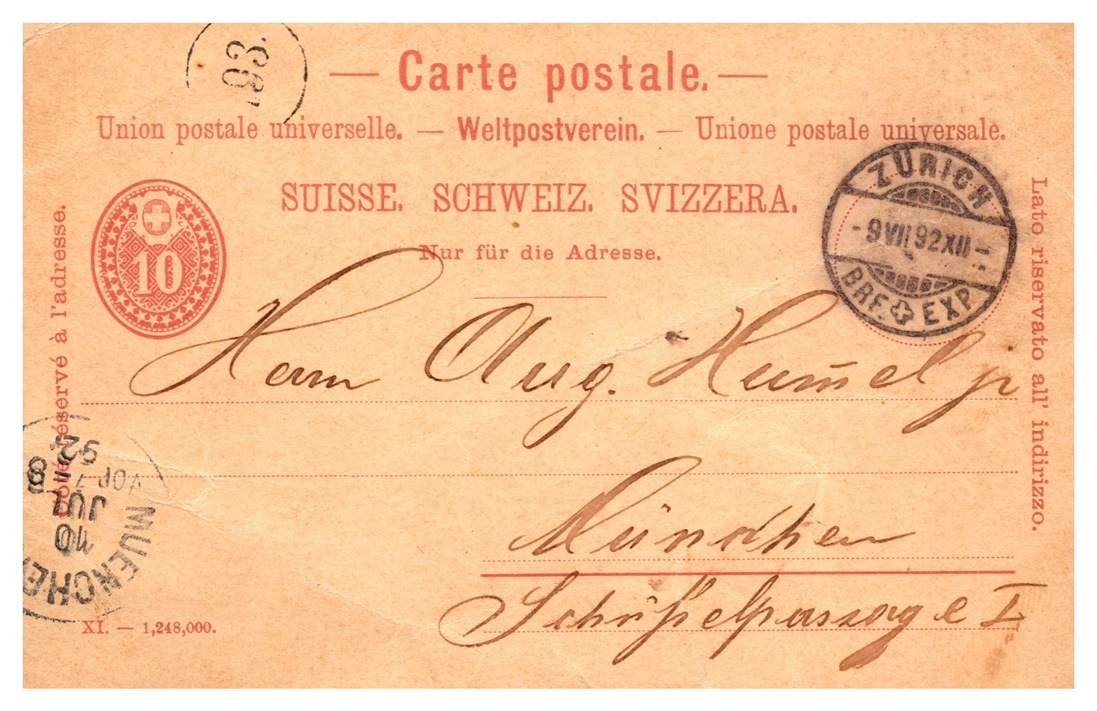 193.
— Carte postale. —
Union postale universelle. — Weltpostverein. — Unione postale universale.
SUISSE. SCHWEIZ. SVIZZERA.
Nur für die Adresse.
10
ZÜRICH
- 9 VII 92 XII -
BRF. EXP.
réservé à l'adresse.
Lato riservato all' indirizzo.
Herrn Aug. Hum̄el jr
München
Schüsselpassage I
MUENCHEN
10
JUL
VOR 7-8
92
XI. — 1,248,000.